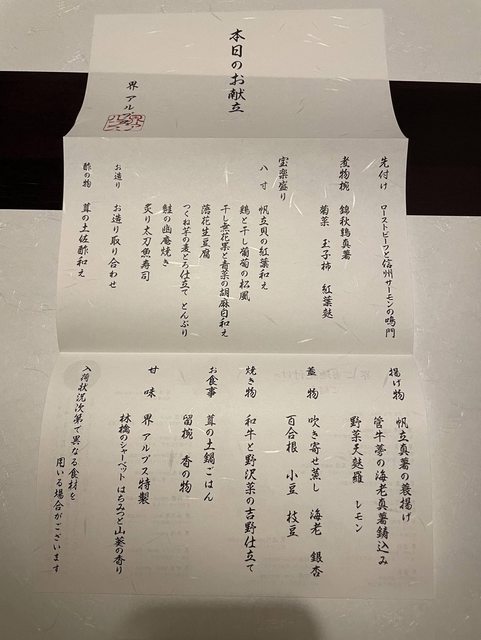 本日のお献立
界 アルプス
先付け ローストビーフと信州サーモンの鳴門
煮物椀 錦秋鶉真薯
菊菜 玉子柿 紅葉麩
宝楽盛り
八寸 帆立貝の紅葉和え
鶏と干し葡萄の松風
干し無花果と青菜の胡麻白和え
落花生豆腐
つくね芋の麦とろ仕立て とんぶり
鮭の幽庵焼き
炙り太刀魚寿司
お造り お造り取り合わせ
酢の物 茸の土佐酢和え
揚げ物 帆立真薯の蓑揚げ
管牛蒡の海老真薯鋳込み
野菜天麩羅 レモン
蓋物 吹き寄せ蒸し 海老 銀杏
百合根 小豆 枝豆
焼き物 和牛と野沢菜の吉野仕立て
お食事 茸の土鍋ごはん
留椀 香の物
甘味 界 アルプス特製
林檎のシャーベット はちみつと山葵の香り
入荷状況次第で異なる食材を
用いる場合がございます